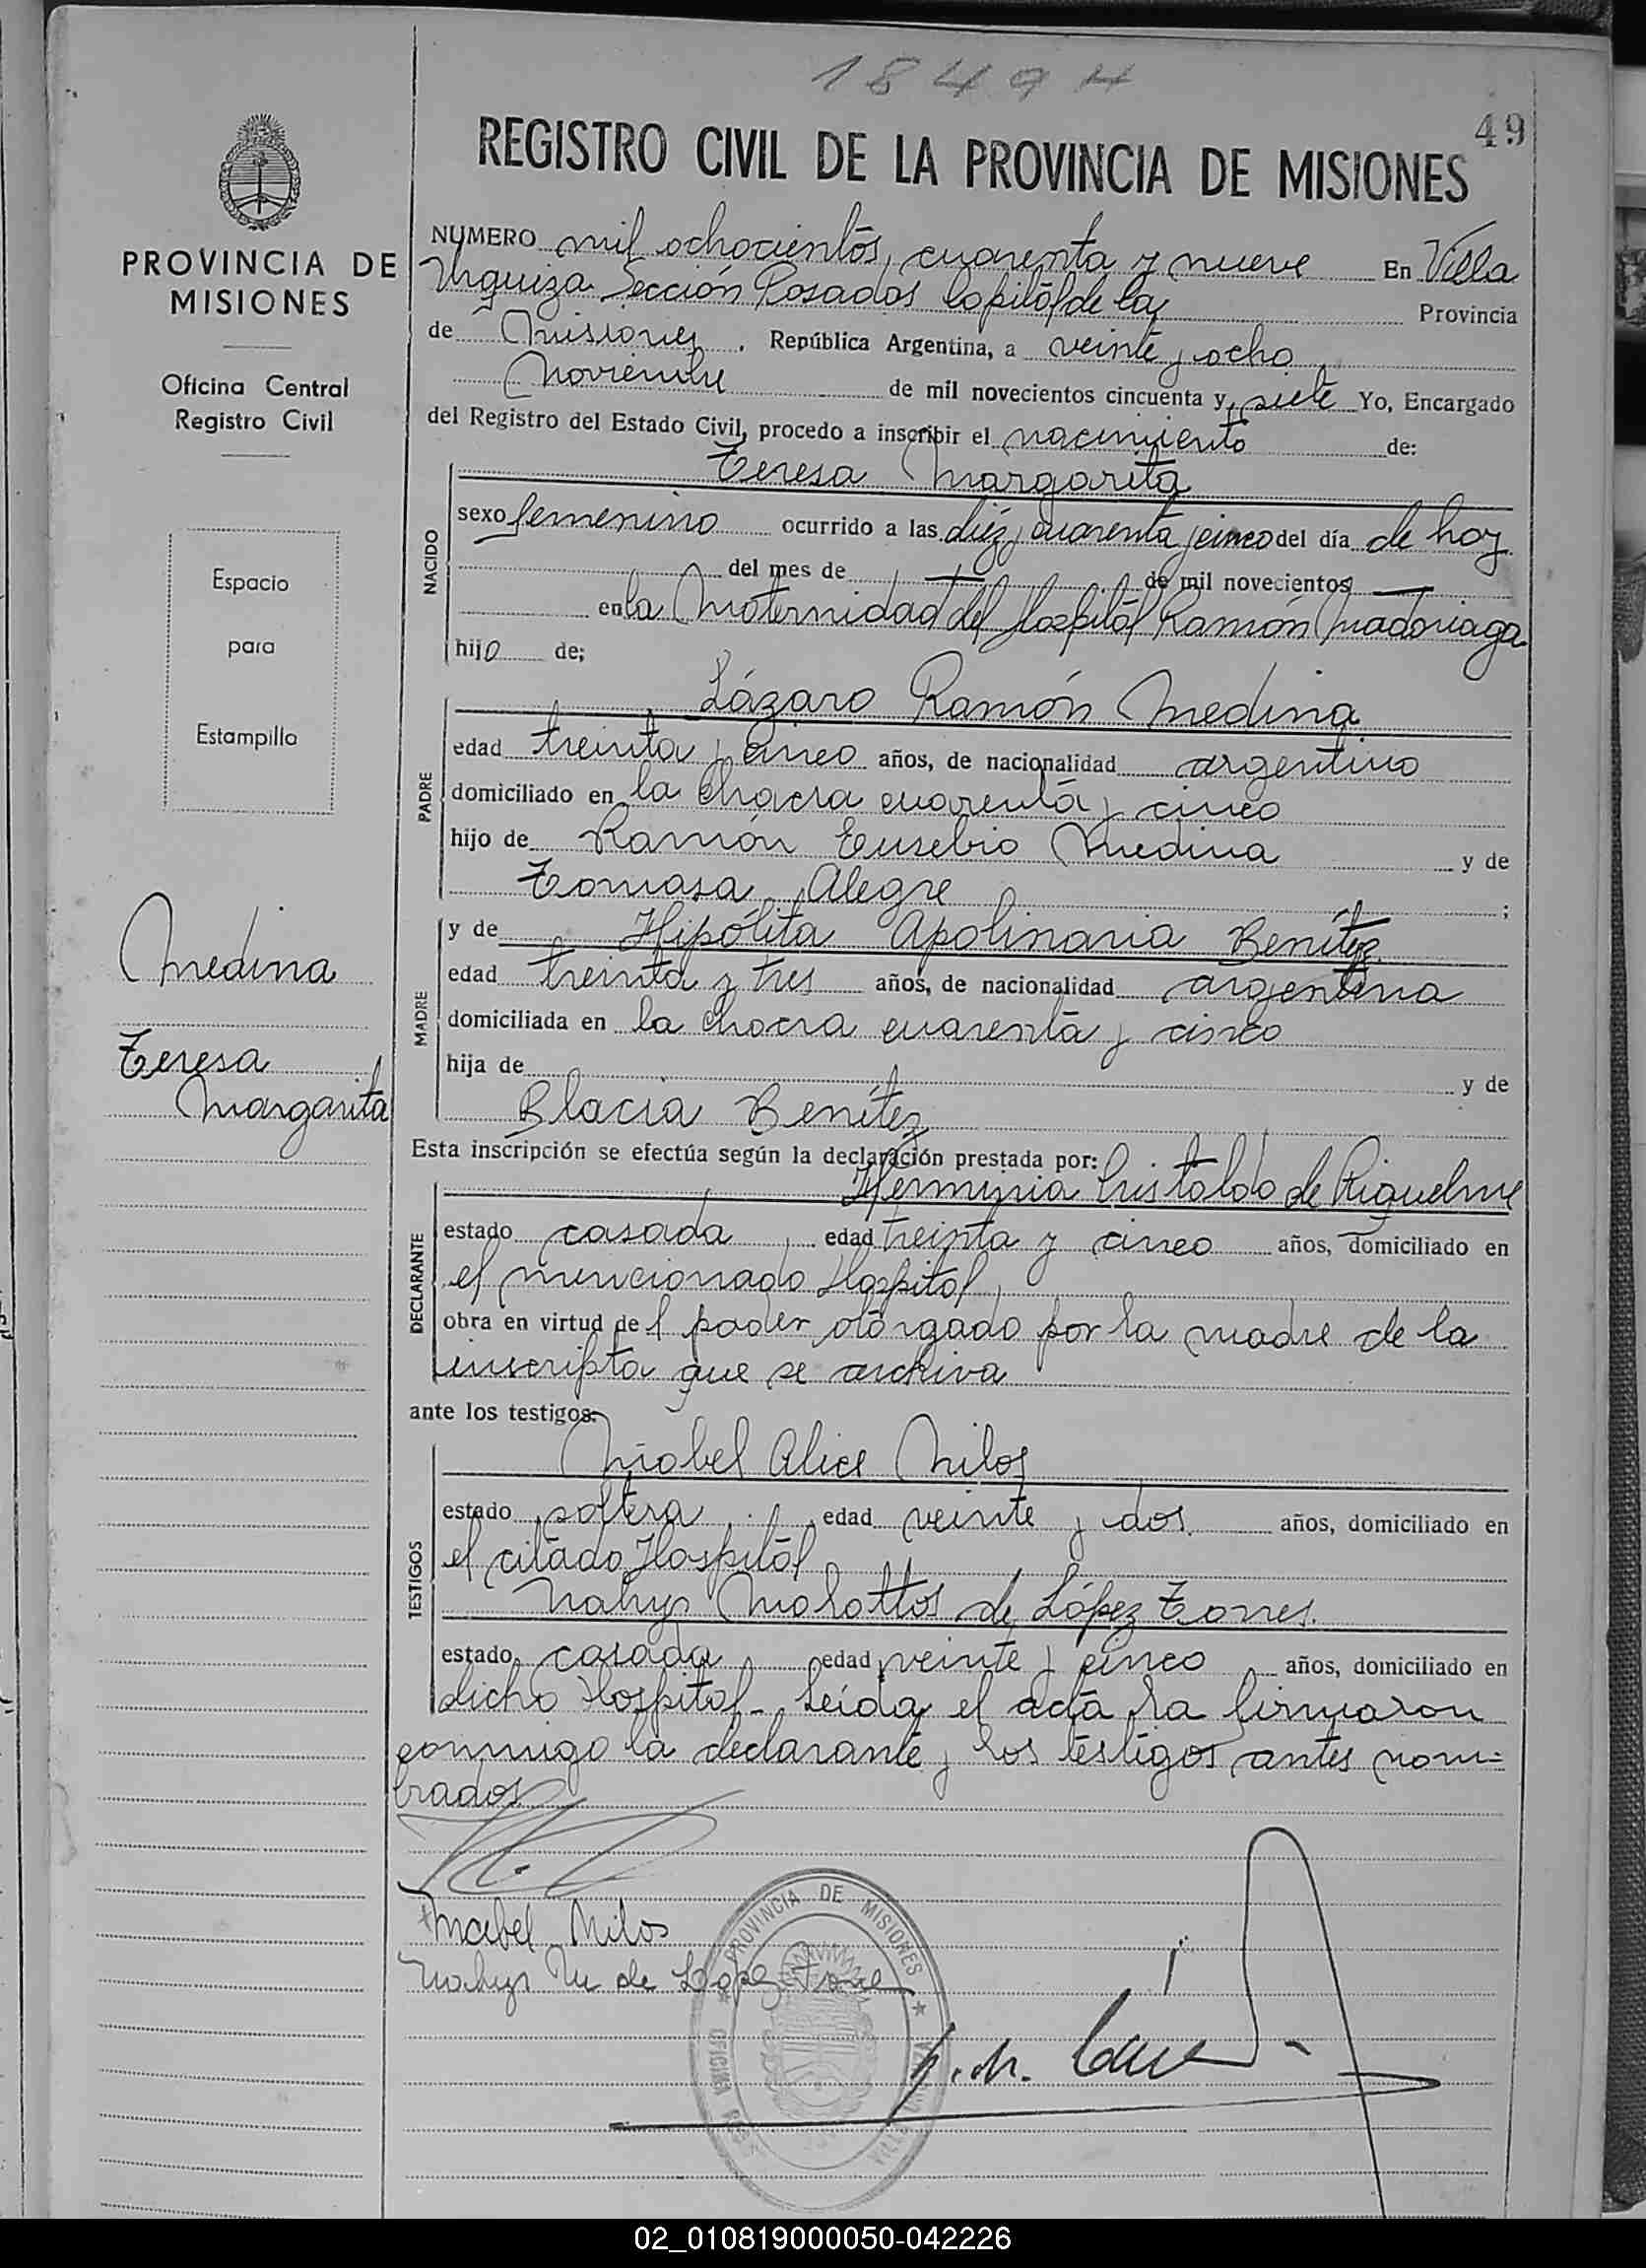 1849 H
49
REGISTRO CIVIL DE LA PROVINCIA DE MISIONES
PROVINCIA DE
MISIONES
Oficina Central
Registro Civil
Espacio
para
Estampilla
Medina
Teresa
Margarita
NUMERO mil ochocientos cuarenta y nueve En Villa
Urquiza Sección Posadas Capital de la Provincia
de Misiones, República Argentina, a veinte y ocho
Noviembre de mil novecientos cincuenta y siete Yo, Encargado
del Registro del Estado Civil, procedo a inscribir el nacimiento de:
Teresa Margarita
NACIDO
sexo femenino ocurrido a las diéz y cuarenta y cinco del día de hoy
del mes de — de mil novecientos —
en la Maternidad del Hospital Ramón Madariaga
hijo de;
Lázaro Ramón Medina
PADRE
edad treinta y cinco años, de nacionalidad argentino
domiciliado en la Chacra cuarenta y cinco
hijo de Ramón Eusebio Medina y de
Tomasa Alegre ;
y de Hipólita Apolinaria Benítez
MADRE
edad treinta y tres años, de nacionalidad argentina
domiciliada en la Chacra cuarenta y cinco
hija de y de
Blacia Benítez
Esta inscripción se efectúa según la declaración prestada por:
Herminia Cristaldo de Riquelme
DECLARANTE
estado casada, edad treinta y cinco años, domiciliado en
el mencionado Hospital,
obra en virtud del poder otorgado por la madre de la
inscripta que se archiva
ante los testigos:
Mabel Alice Milos
TESTIGOS
estado soltera, edad veinte y dos años, domiciliado en
el citado Hospital
Nahyr de López Torres.
estado casada edad veinte y cinco años, domiciliado en
dicho Hospital- Leída el acta la firmaron
conmigo la declarante y los testigos antes nom=
brados
Mabel Milos
Nahyr M de López Torres
PROVINCIA DE MISIONES
OFICINA
02_010819000050-042226